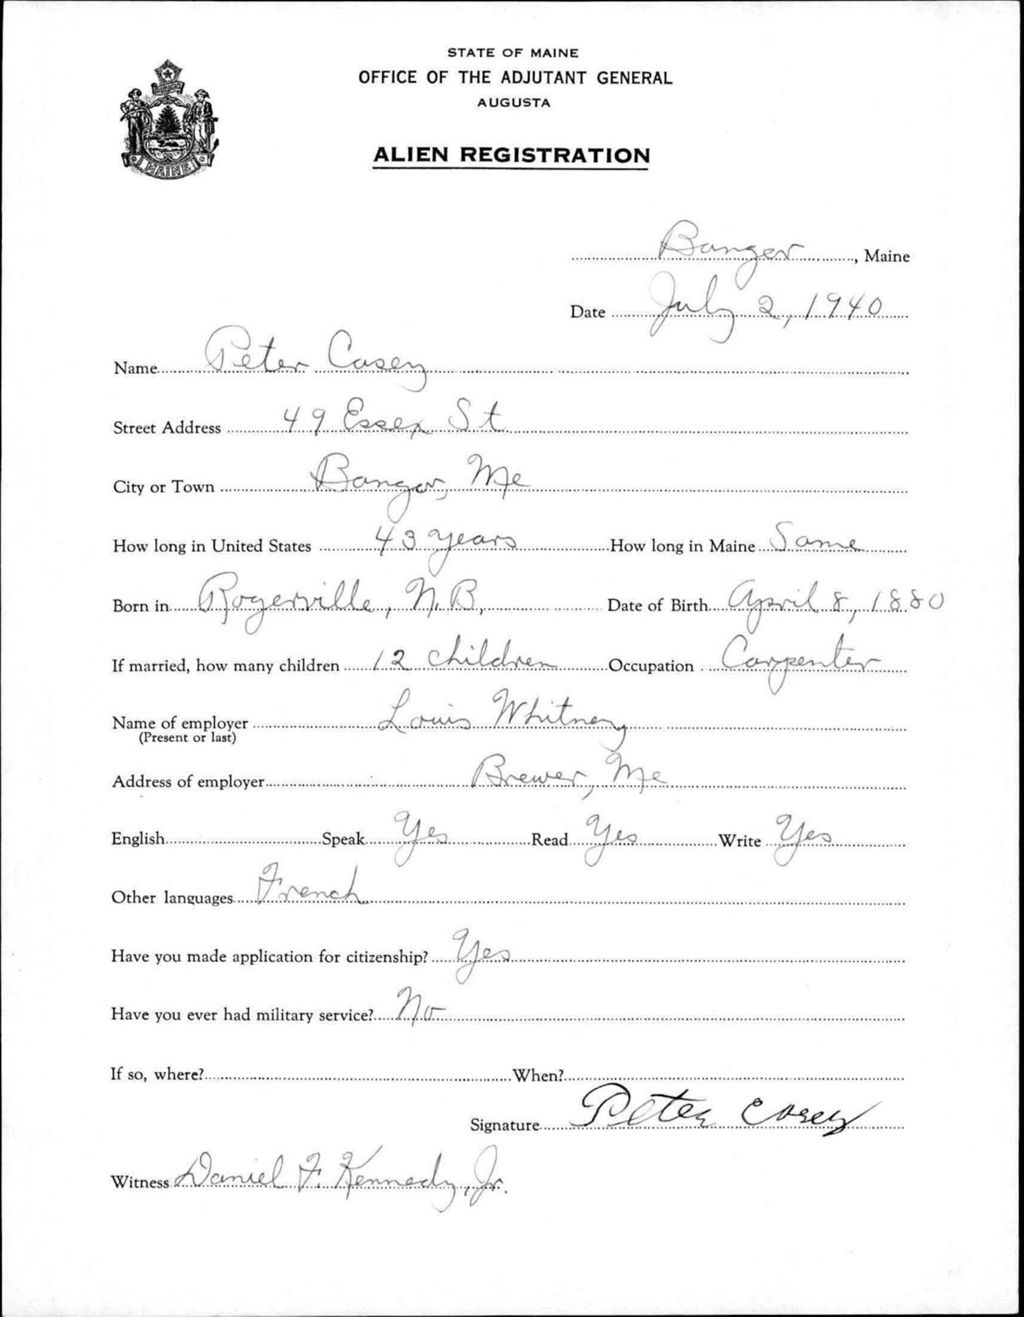 STATE OF MAINE
OFFICE OF THE ADJUTANT GENERAL
AUGUSTA
ALIEN REGISTRATION
MAINE
Bangor, Maine
Date July 2, 1940
Name Peter Casey
Street Address 49 Essex St
City or Town Bangor, Me
How long in United States 43 years How long in Maine Same
Born in Rogerville, N.B, Date of Birth April 8, 1880
If married, how many children 12 children Occupation Carpenter
Name of employer Louis Whitney
(Present or last)
Address of employer Brewer, Me
English Speak Yes Read Yes Write Yes
Other languages French
Have you made application for citizenship? Yes
Have you ever had military service? No
If so, where? When?
Signature Peter Casey
Witness Daniel F. Kennedy, Jr.